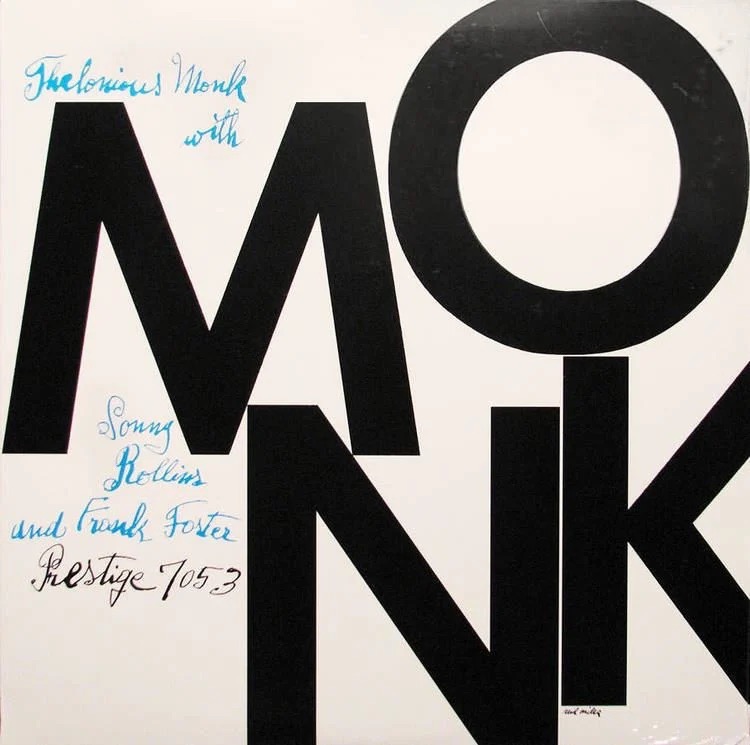 Thelonious Monk
with
MO
NK
Sonny
Rollins
and Frank Foster
Prestige 7053